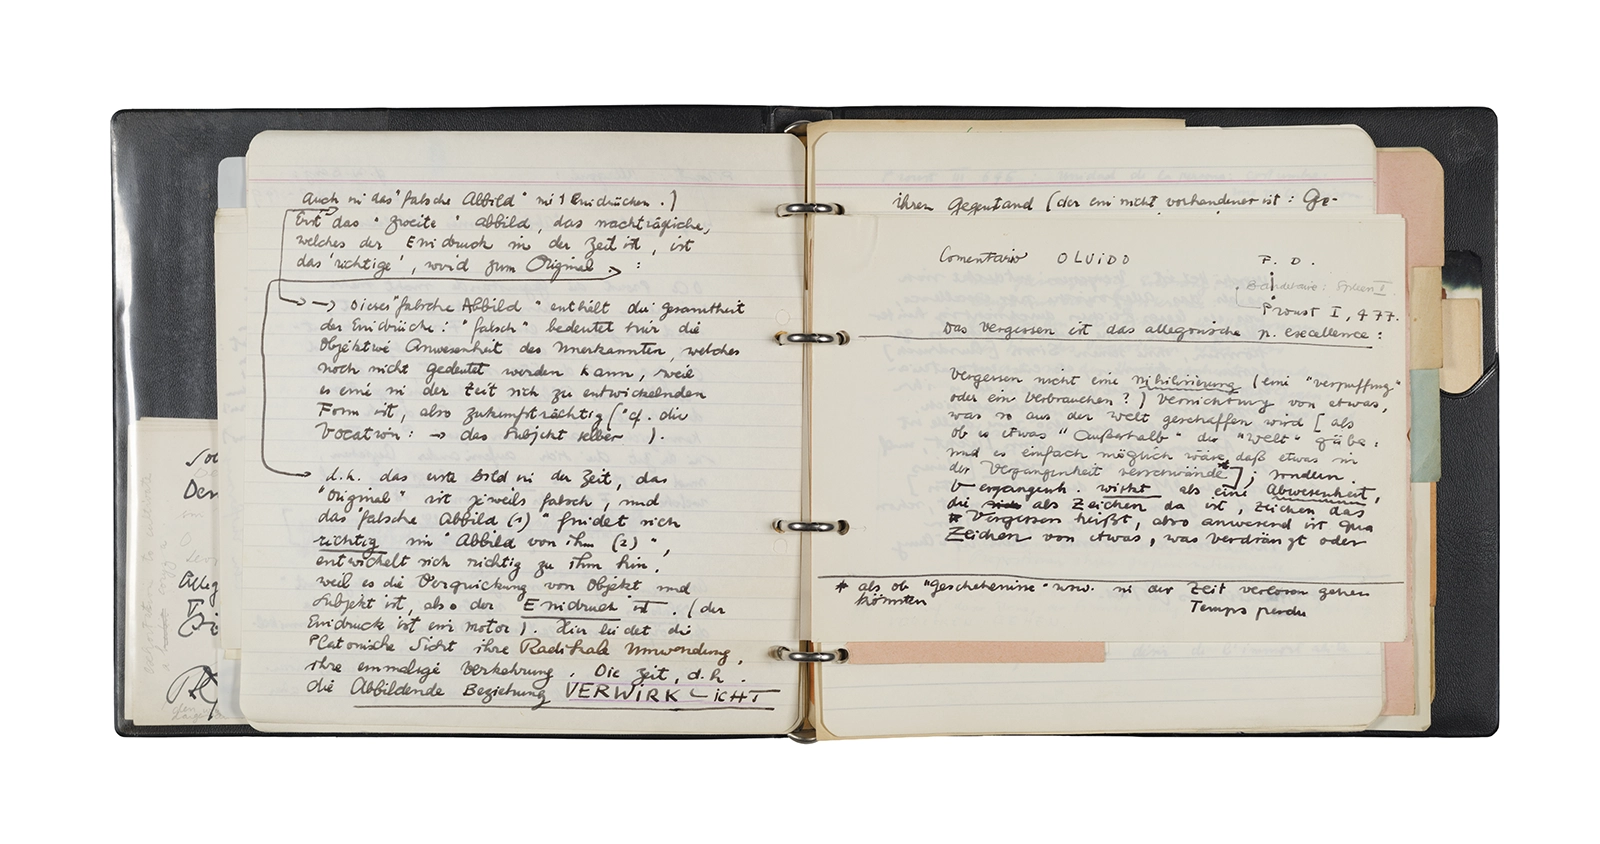 auch in das "falsche Abbild" mit Eindrücken.)
Erst das "zweite" Abbild, das nachträgliche,
welches der Eindruck in der Zeit ist, ist
das 'richtige', wird zum Original. :
→ Dieses "falsche Abbild" enthält die Gesamtheit
der Eindrücke: "falsch" bedeutet hier die
Objektive Anwesenheit des Unerkannten, welches
noch nicht gedeutet werden kann, weil
es eine in der Zeit sich zu entwickelnden
Form ist, also zukunftsträchtig (cf. die
Vocation: → das Subjekt selber ).
d.h. das erste Bild in der Zeit, das
"Original" ist jeweils falsch, und
das "falsche Abbild (1)" findet sich
richtig im "Abbild von ihm (2)",
entwickelt sich richtig zu ihm hin,
weil es die Verquickung von Objekt und
Subjekt ist, also der Eindruck ist. (der
Eindruck ist ein Motor). Hier leidet die
Platonische Sicht ihre Radikale Umwendung,
ihre einmalige Verkehrung. Die Zeit, d.h.
die Abbildende Beziehung VERWIRKLICHT
ihren Gegenstand (der ein nicht vorhandener ist: Ge-
Comentario OLVIDO P. D.
Baudelaire: Spleen I
Proust I, 477.
Das Vergessen ist das allegorische p. excellence:
Vergessen nicht eine nihilisierung (eine "verpuffung"
oder ein Verbrauchen?) Vernichtung von etwas,
was so aus der Welt geschaffen wird [als
ob es etwas "Außerhalb" der "Welt" gäbe,
und es einfach möglich wäre, daß etwas in
der Vergangenheit verschwände*]; sondern
Vergangenh. wirkt als eine Abwesenheit,
die als Zeichen da ist, Zeichen das
Vergessen heißt, also anwesend ist qua
Zeichen von etwas, was verdrängt oder
* als ob "Geschehenisse" usw. in der Zeit verloren gehen
könnten Temps perdu